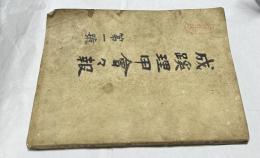 成蹊理甲會々報
第一號